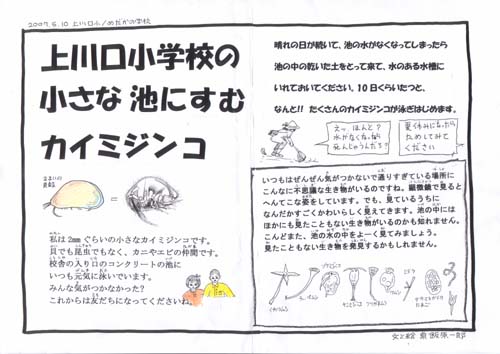 2007.6.10 上川口小/めだかの学校
上川口小学校の
小さな 池にすむ
カイミジンコ
私は2mmぐらいの小さなカイミジンコです。
貝でも昆虫でもなく、カニやエビの仲間です。
校舎の入り口のコンクリートの池に
いつも元気に泳いでいます。
みんな気がつかなかった?
これからは友だちになってくださいね。
晴れの日が続いて、池の水がなくなってしまったら
池の中の乾いた土をとって来て、水のある水槽に
いれておいてください。10日くらいたつと、
なんと!! たくさんのカイミジンコが泳ぎはじめます。
えっ、ほんと?
水がなくなったら
死んじゃうんだろ?
夏休みになったら
ためしてみて
ください
いつもはぜんぜん気がつかないで通りすぎている場所に
こんなに不思議な生き物がいるのですね。顕微鏡で見ると
へんてこな姿をしています。でも、見ているうちに
なんだかすごくかわいらしく見えてきます。池の中には
ほかにも見たこともない生き物がいるのかも知れません。
こんどまた、池の水の中をよーく見てみましょう。
見たこともない生き物を発見するかもしれません。